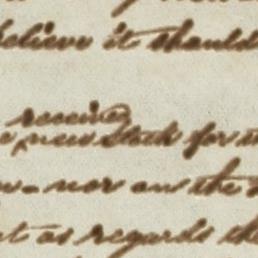 believe it should
received
new stock for
nor on the
as regards the